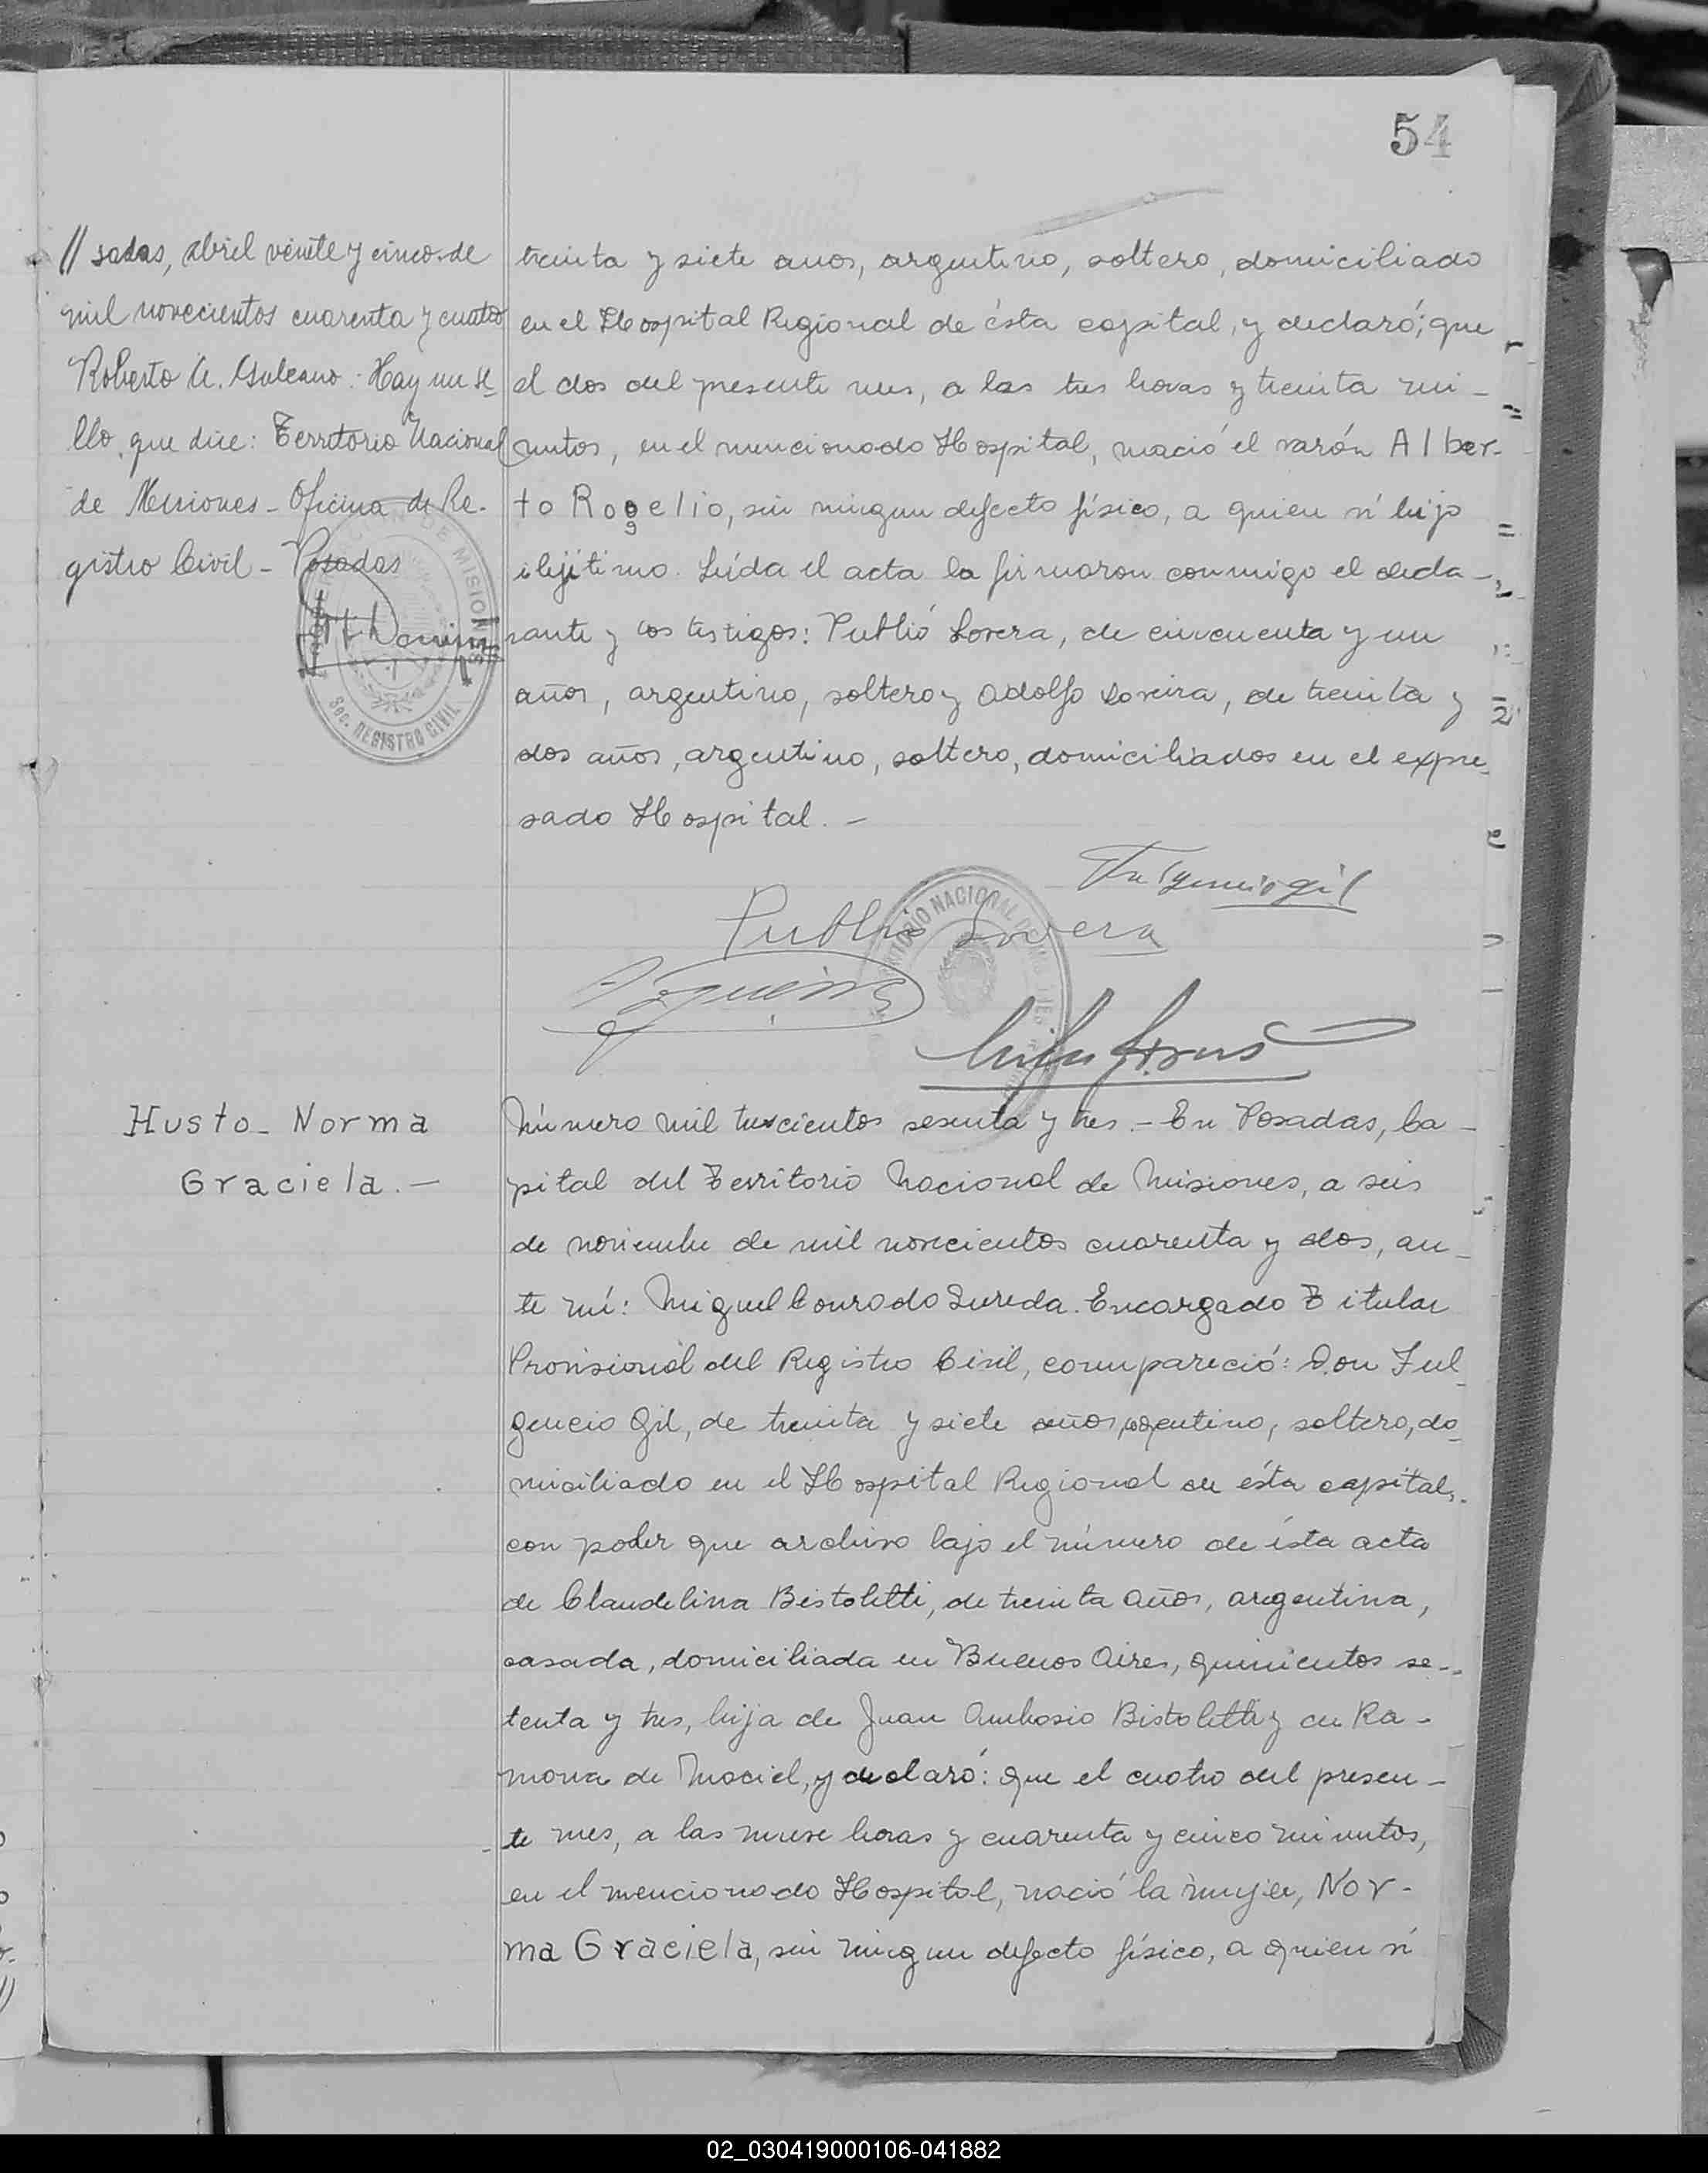 54
// sadas, abril veinte y cinco de
mil novecientos cuarenta y cuatro
Roberto A. Galeano. Hay un se
llo, que dice: Territorio Nacional
de Misiones - Oficina de Re-
gistro Civil - Posadas
DE MISIONES
Sec. REGISTRO CIVIL
treinta y siete anos, argentino, soltero, domiciliado
en el Hospital Regional de ésta capital, y declaró; que
el dos del presente mes, a las tres horas y treinta mi-
nutos, en el mencionado Hospital, nació el varón Alber-
to Rogelio, sin ningun defecto físico, a quien ví hijo
ilejítimo. Leída el acta la firmaron conmigo el decla-
rante y los testigos: Publio Lovera, de cincuenta y un
años, argentino, soltero y Adolfo , de treinta y
dos años, argentino, soltero, domiciliados en el expre-
sado Hospital. -
Fulgencio gil
Publio Lovera
TERRITORIO NACIONAL DE MISIONES
Husto - Norma
Graciela. -
Número mil trescientos sesenta y tres. - En Posadas, Ca-
pital del Territorio Nacional de Misiones, a seis
de noviembre de mil novecientos cuarenta y dos, an-
te mí: Miguel Conrado Sureda. Encargado Titular
Provisional del Registro Civil, compareció: Don Ful-
gencio Gil, de treinta y siete años, argentino, soltero, do-
miciliado en el Hospital Regional de ésta capital,
con poder que archivo bajo el número de ésta acta
de Claudelina Bistoletti, de treinta años, argentina,
casada, domiciliada en Buenos Aires, quinientos se-
tenta y tres, hija de Juan Ambrosio Bistoletti y de Ra-
mona de Maciel, y declaró: que el cuatro del presen-
te mes, a las nueve horas y cuarenta y cinco minutos,
en el mencionado Hospital, nació la mujer, Nor-
ma Graciela, sin ningun defecto físico, a quien ví
02_030419000106-041882